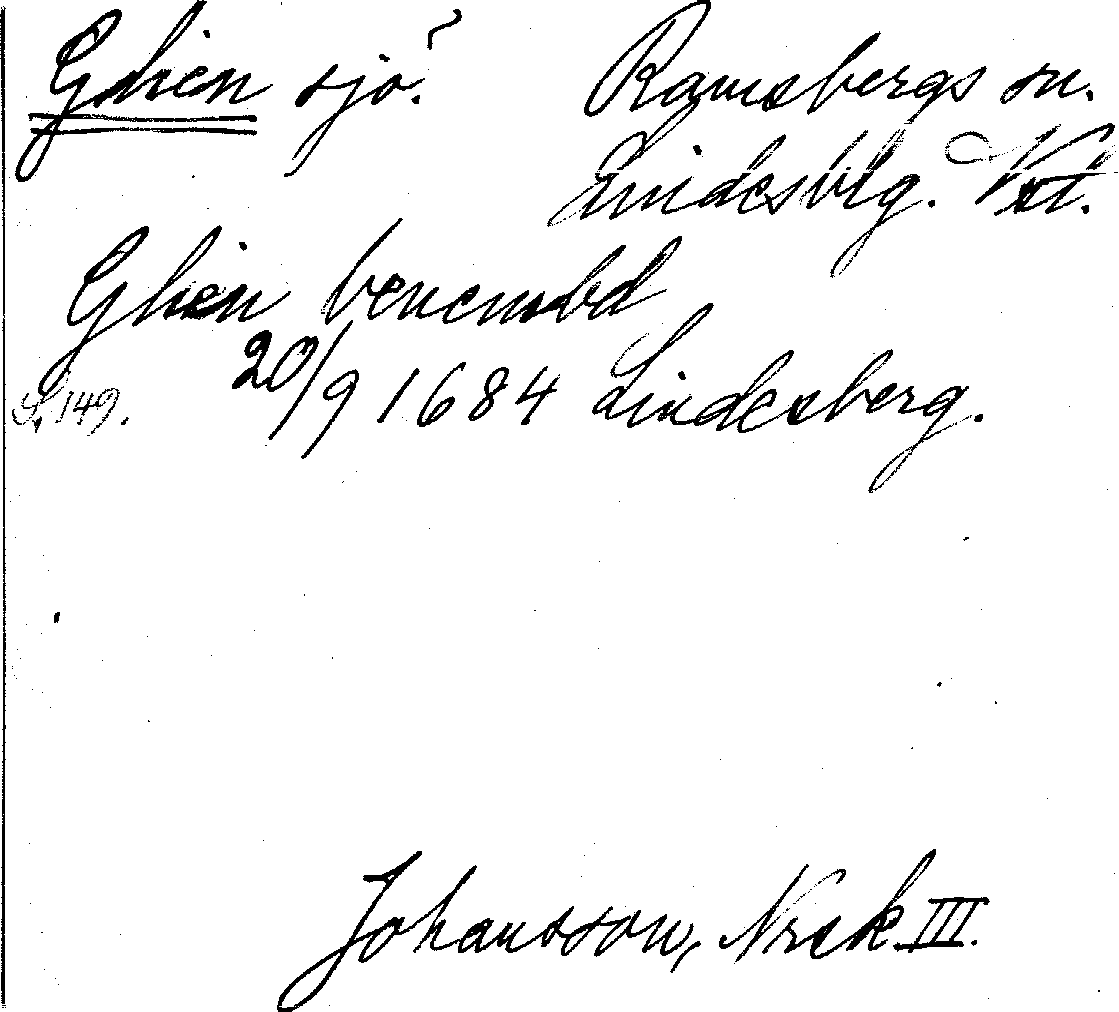 Ghien sjö?
Ramsbergs sn.
Lindesblg. Vstl.
Ghien benembd
S. 149. 20/9 1684 Lindesberg.
Johansson, Nrsk III.